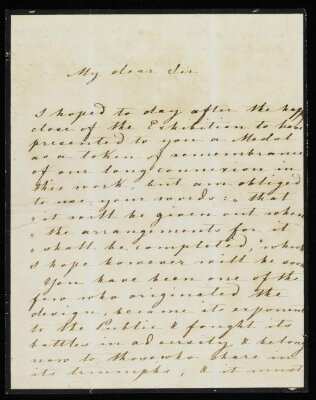 My dear Sir
I hoped to day after the happy
close of the Exhibition to have
presented to you a Medal
as a token of remembrance
of our long connexion in
this work, but am obliged
to use your words: "that
"it will be given out when
"the arrangements for it
"shall be completed," which
I hope however will be soon
You have been one of the
few who originated the
design, became its exponent
to the Public & fought its
battles in adversity & belong
now to those who share in
its triumphs, & it must